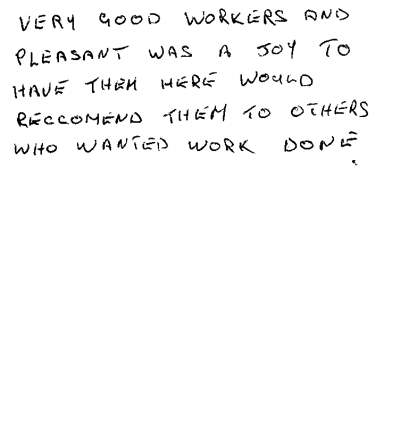 VERY GOOD WORKERS AND
PLEASANT WAS A JOY TO
HAVE THEM HERE WOULD
RECCOMEND THEM TO OTHERS
WHO WANTED WORK DONE.